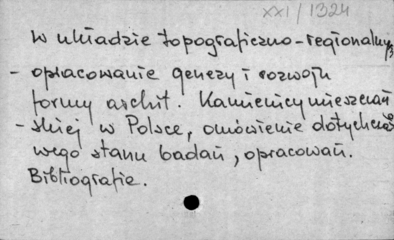 XXI/1324
w układzie topograficzno-regionalnym
- opracowanie genezy i rozwoju
formy archit. Kamienicy mieszczań
- skiej w Polsce, omówienie dotychczaso
wego stanu badań, opracowań.
Bibliografie.